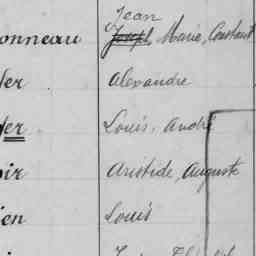 Jean
onneau Joseph Marie, Constant
er Alexandre
er Louis, André
oir Aristide, Auguste
ien Louis